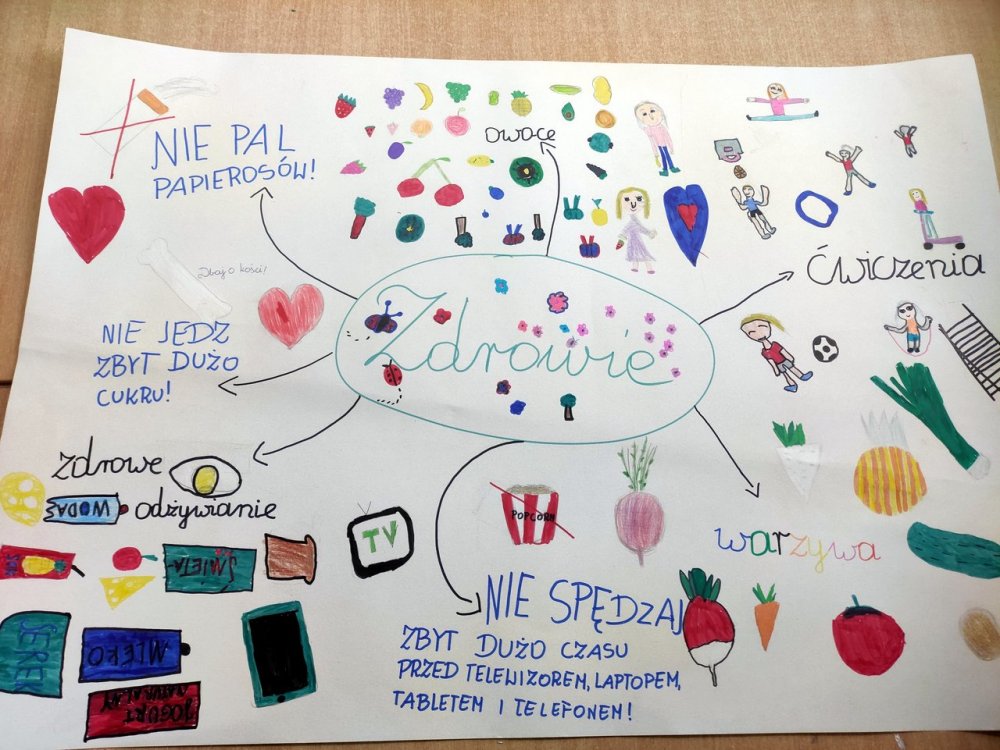 NIE PAL
PAPIEROSÓW!
owoce
Dbaj o kości!
Ćwiczenia
Zdrowie
NIE JEDZ
ZBYT DUŻO
CUKRU!
zdrowe
odżywianie
WODA
TV
POPCORN
warzywa
SEREK
MLEKO
JOGURT
NATURALNY
NIE SPĘDZAJ
ZBYT DUŻO CZASU
PRZED TELEWIZOREM, LAPTOPEM,
TABLETEM I TELEFONEM!